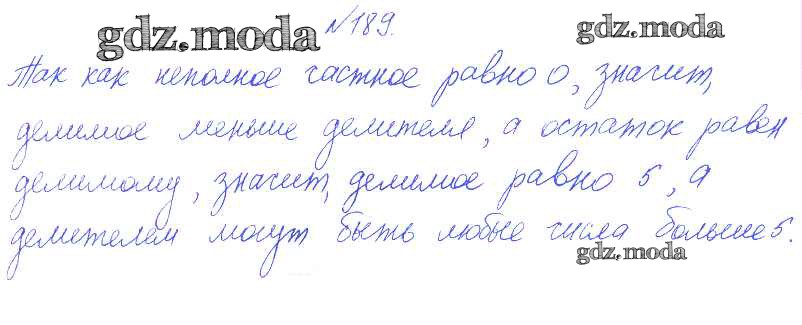 gdz.moda №189. gdz.moda
Так как неполное частное равно 0, значит,
делимое меньше делителя, а остаток равен
делимому, значит, делимое равно 5, а
делителем могут быть любые числа больше 5.
gdz.moda